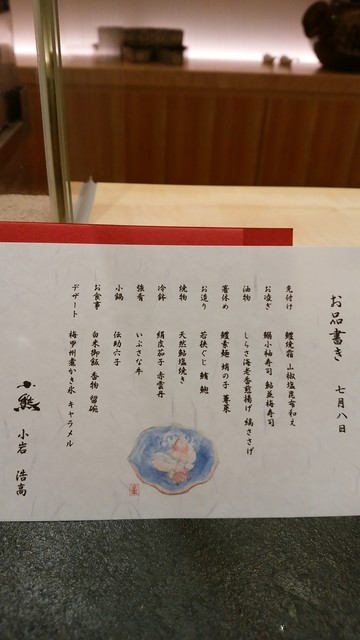 お品書き
七月八日
先付け 鱧焼霜 山椒塩昆布和え
お凌ぎ 鰯小袖寿司 鮎並梅寿司
油物 しらさ海老香煎揚げ 縞ささげ
箸休め 鱧素麺 蛸の子 蓴菜
お造り 若狭ぐじ 鱧 鮑
焼物 天然鮎塩焼き
冷鉢 絹皮茄子 赤雲丹
強肴 いぶさな牛
小鍋 伝助穴子
お食事 白米御飯 香物 留碗
デザート 梅甲州煮かき氷 キャラメル
小熊
小岩 浩高